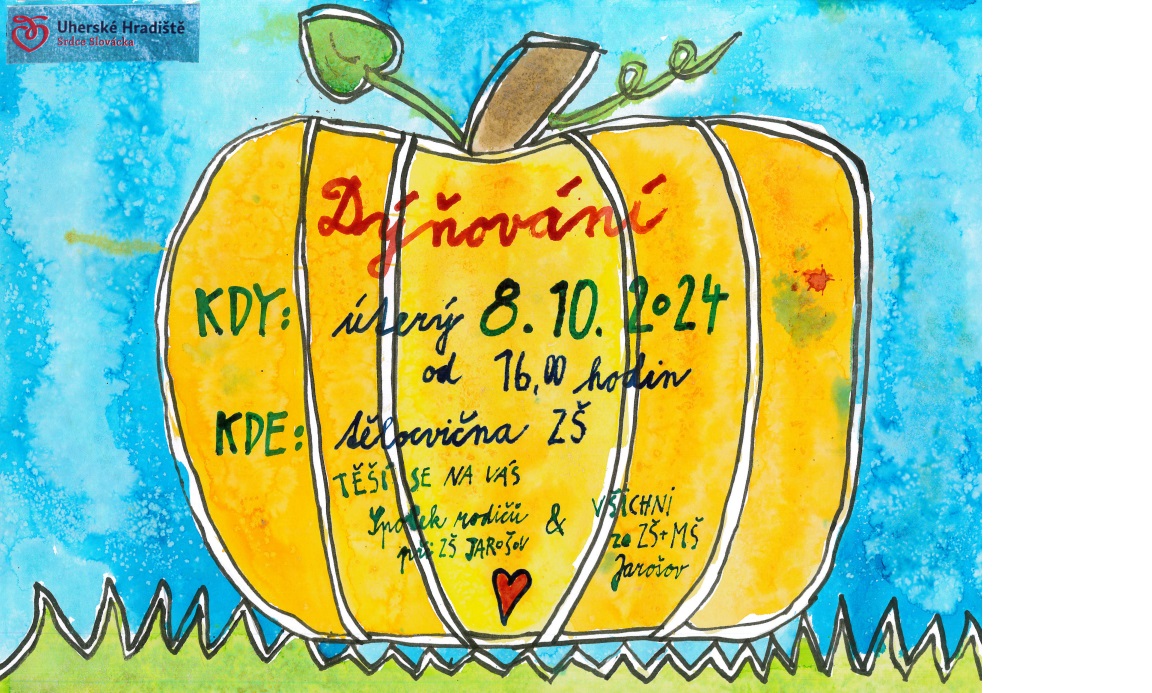 Uherské Hradiště
Srdce Slovácka
Dýňování
KDY: úterý 8. 10. 2024
od 16,00 hodin
KDE: tělocvična ZŠ
TĚŠÍ SE NA VÁS
Spolek rodičů
při ZŠ JAROŠOV
&
VŠICHNI
ze ZŠ+MŠ
Jarošov